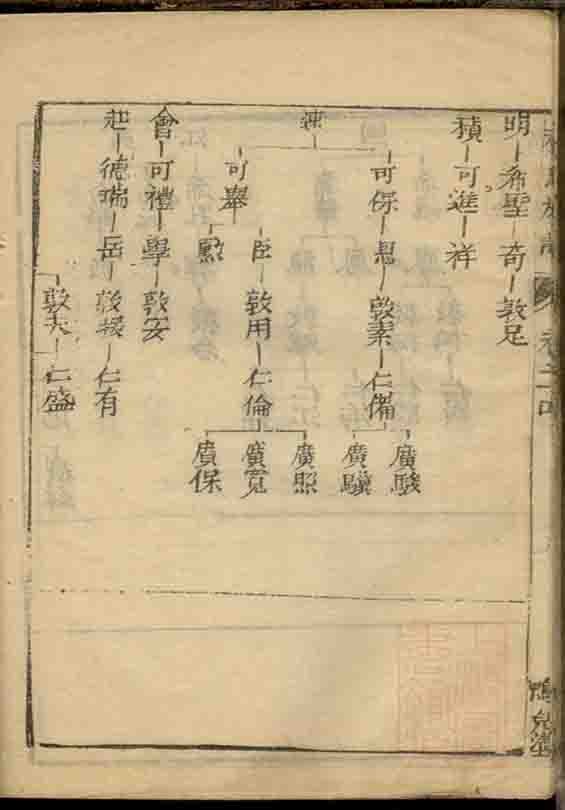 明 希聖 奇 敦足
積 可進 祥
可保 恩 敦素 仁備
廣駿
廣驥
臣 敦用 仁倫
廣照
廣寬
廣保
可舉
勲
會 可禮 學 敦安
起 德瑞 岳 敦 仁有
敦大 仁盛